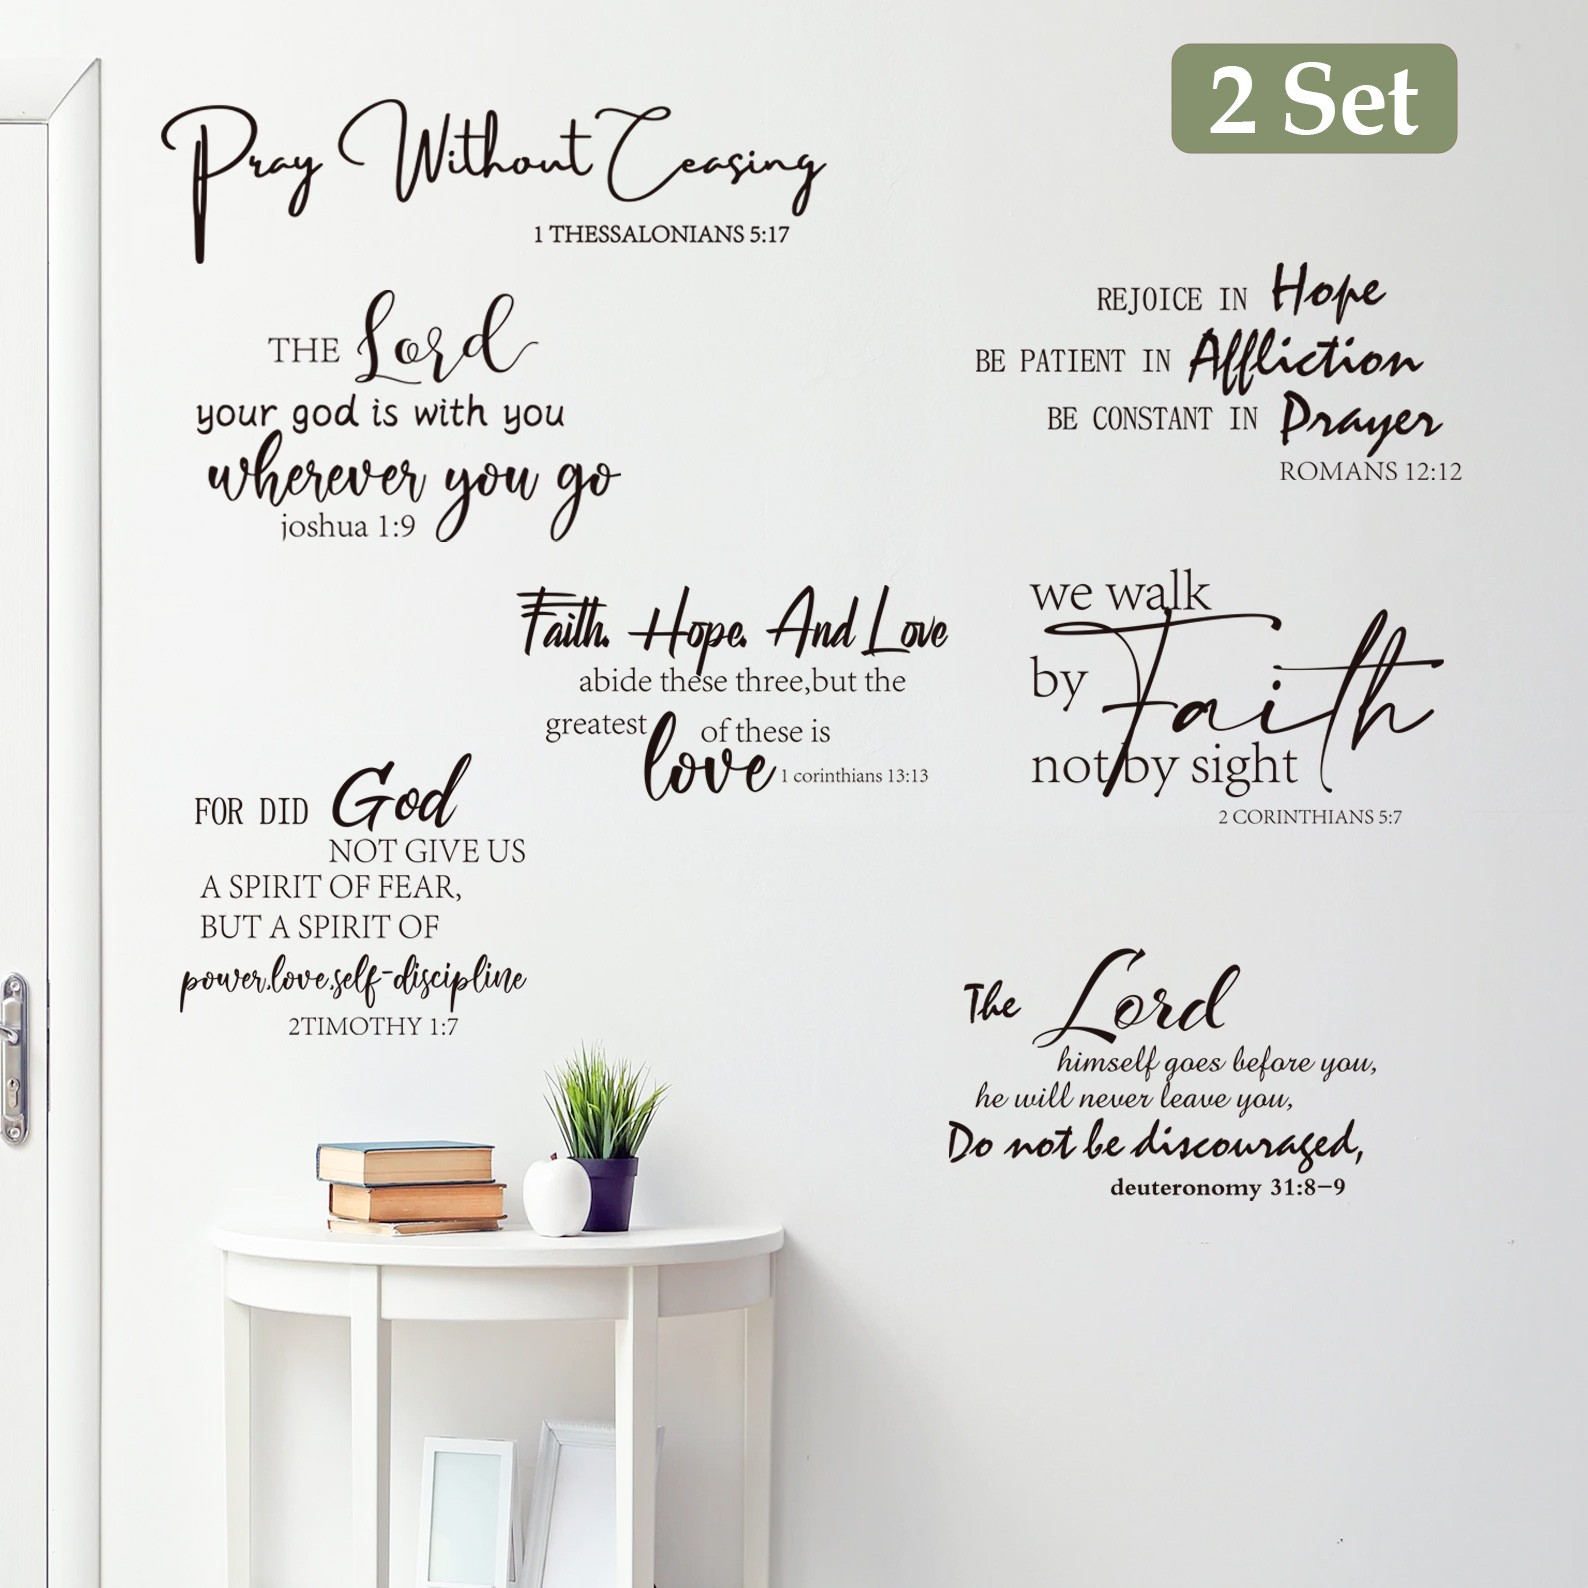 2 Set
Pray Without Ceasing
1 THESSALONIANS 5:17
THE Lord
your god is with you
wherever you go
joshua 1:9
REJOICE IN Hope
BE PATIENT IN Affliction
BE CONSTANT IN Prayer
ROMANS 12:12
Faith. Hope. And Love
abide these three,but the
greatest of these is
love 1 corinthians 13:13
we walk
by Faith
not by sight
2 CORINTHIANS 5:7
FOR DID God
NOT GIVE US
A SPIRIT OF FEAR,
BUT A SPIRIT OF
power.love.self-discipline
2TIMOTHY 1:7
The Lord
himself goes before you,
he will never leave you,
Do not be discouraged,
deuteronomy 31:8-9